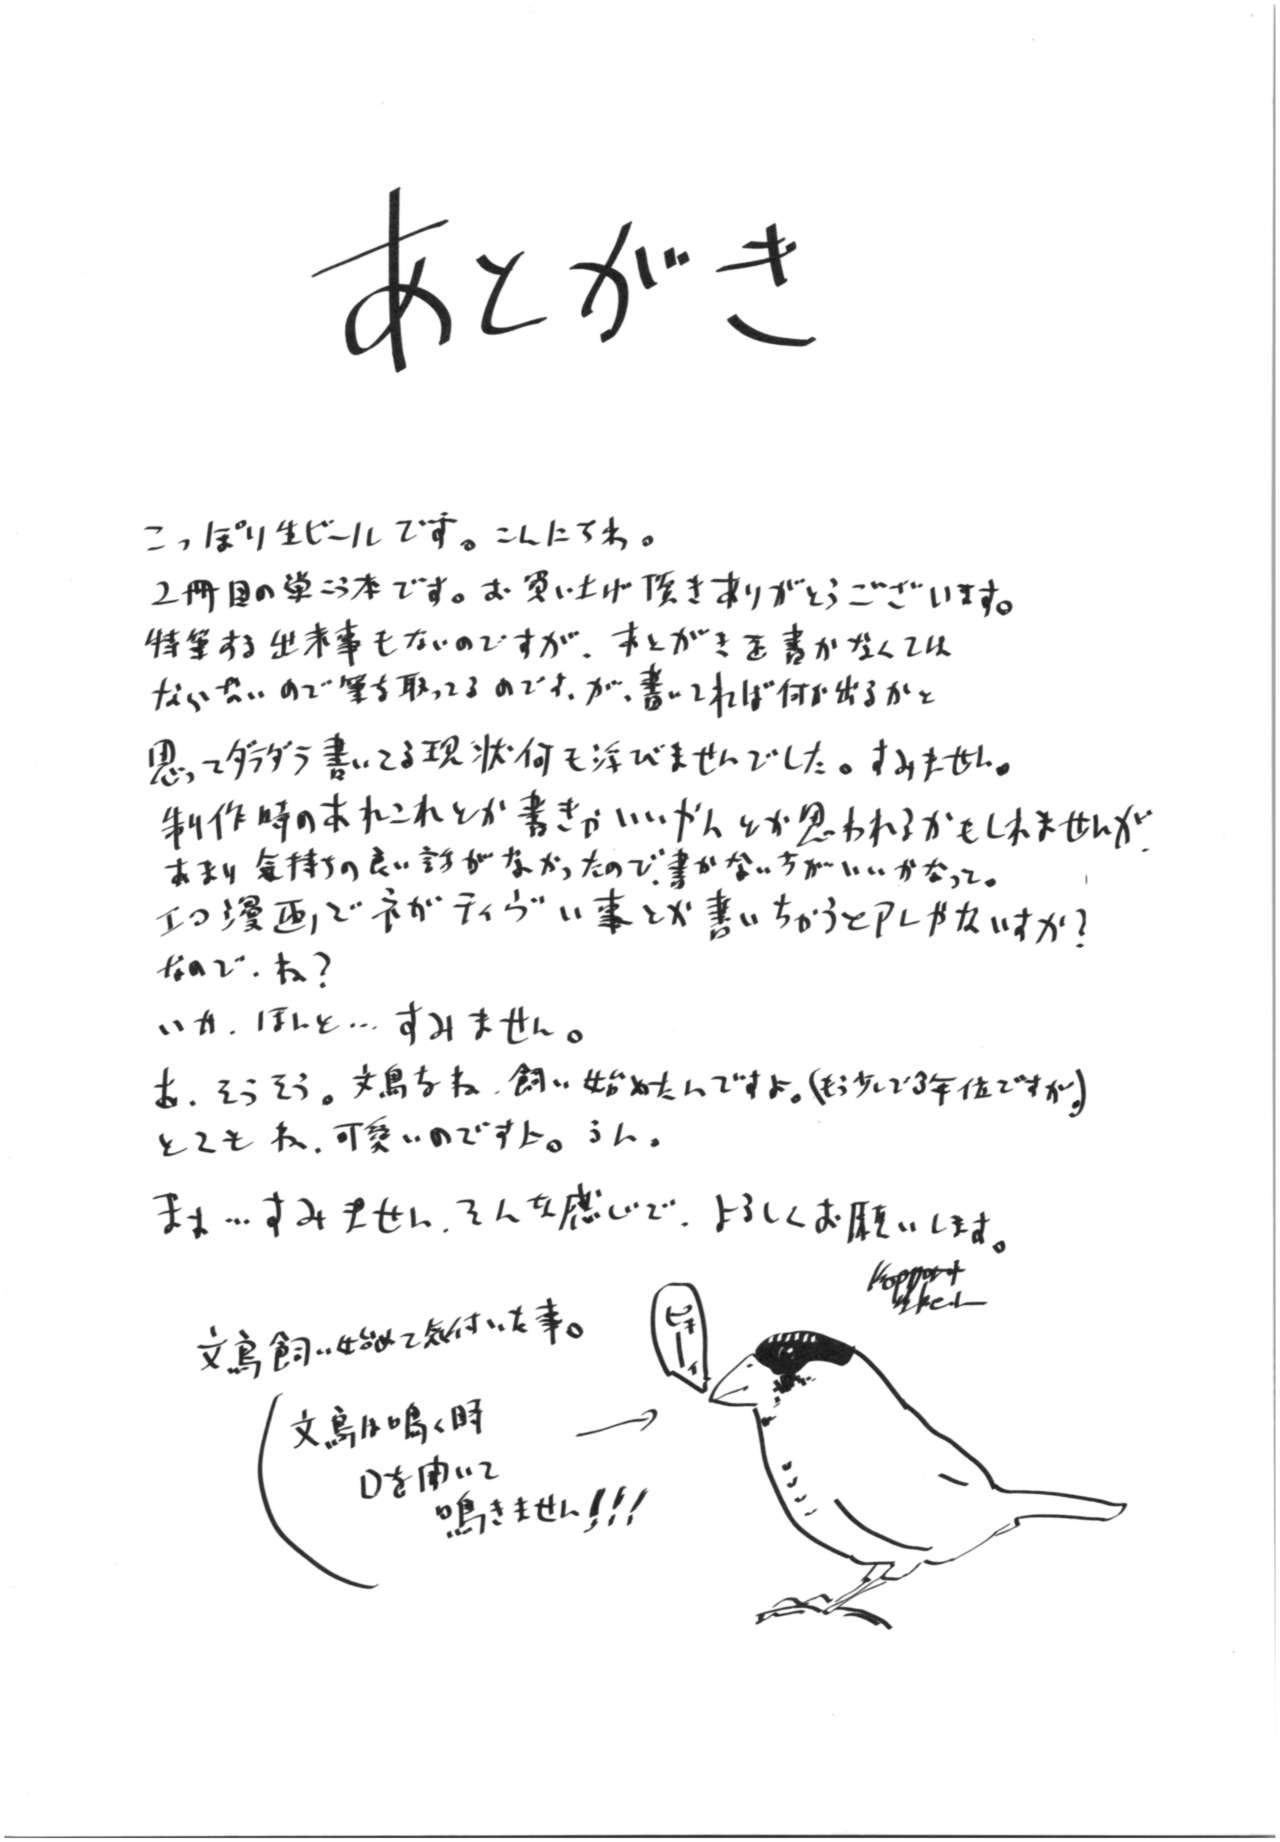 あとがき
こっぽり生ビールです。こんにちわ。
2冊目の単こう本です。お買い上げ頂きありがとうございます。
特筆する出来事もないのですが、あとがきを書かなくては
ならないので筆を取ってるのです、が、書いてれば何か出るかと
思ってダラダラ書いてる現状何も浮びませんでした。すみません。
制作時のあれこれとか書きゃいいやんとか思われるかもしれませんが、
あまり気持ちの良い話がなかったので、書かない方がいいかなって。
エロ漫画でネガティヴい事とか書いちゃうとアレぢゃないすか?
なので、ね?
いや、ほんと…すみません。
あ、そうそう。文鳥をね、飼い始めたんですよ。(もう少しで3年位ですが。)
とてもね、可愛いのですよ。うん。
まぁ…すみません、そんな感じで、よろしくお願いします。
文鳥飼い始めて気付いた事。
ピキーィ
文鳥は鳴く時
口を開いて
鳴きません!!!